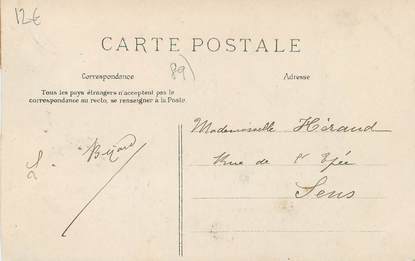 12€
CARTE POSTALE
89)
Correspondance
Adresse
Tous les pays étrangers n'acceptent pas le
correspondance au recto, se renseigner à la Poste.
Mademoiselle Héraud
Rue de l'Epée
Sens